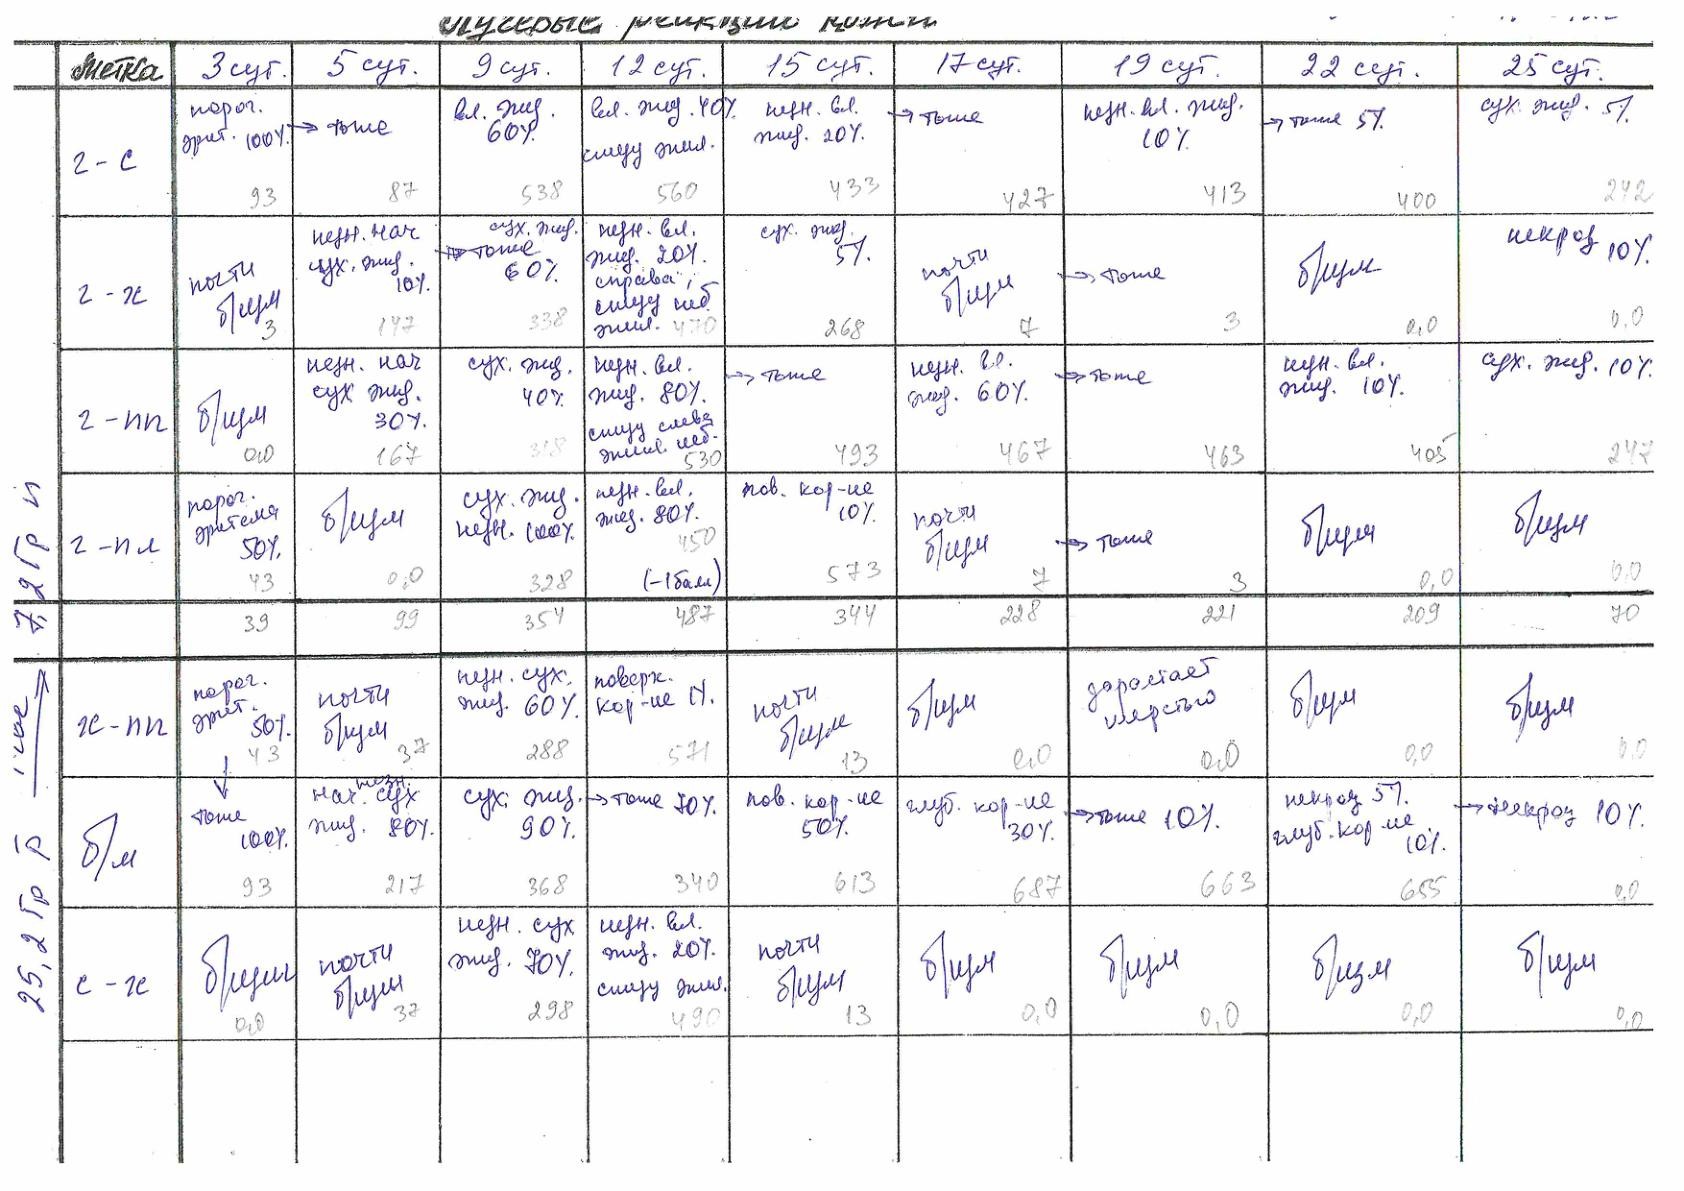 Лучевые реакции кожи
Метка 3 сут. 5 сут. 9 сут. 12 сут. 15 сут. 17 сут. 19 сут. 22 сут. 25 сут.
г-с
порог.
эрит. 100%
93
→ тоже
87
вл. эпид.
60%
538
вл. эпид. 40%
снизу эпил.
560
незн. вл.
эпид. 20%
433
→ тоже
427
незн. вл. эпид.
10%
413
→ тоже 5%
400
сух. эпид. 5%
242
г-ж
почти
б/изм
3
незн. нач
сух. эпид.
10%
147
сух. эпид.
→ тоже
60%
338
незн. вл.
эпид. 20%
справа,
снизу неб.
эпил. 470
сух. эпид.
5%
268
почти
б/изм
7
→ тоже
3
б/изм
0,0
некроз
10%
0,0
г-пп
б/изм
0,0
незн. нач
сух эпид.
30%
167
сух. эпид.
40%
318
незн. вл.
эпид. 80%
снизу слева
эпил. неб.
530
→ тоже
493
незн. вл.
эпид. 60%
467
→ тоже
463
незн. вл.
эпид. 10%
405
сух. эпид. 10%
247
г-пл
порог.
эритема
50%
43
б/изм
0,0
сух. эпид.
незн. 100%
328
незн. вл.
эпид. 80%
450
(-1 балл)
пов. кор-ие
10%
573
почти
б/изм
7
→ тоже
3
б/изм
0,0
б/изм
0,0
39 99 354 487 344 228 221 209 70
ж-пп
порог.
эрит.
50%
43
почти
б/изм
37
незн. сух.
эпид. 60%
288
поверх.
кор-ие 1%
571
почти
б/изм
13
б/изм
0,0
зарастает
шерстью
0,0
б/изм
0,0
б/изм
0,0
б/м
↓
тоже
100%
93
незн.
нач. сух
эпид. 80%
217
сух. эпид.
90%
368
→ тоже 70%
340
пов. кор-ие
50%
613
глуб. кор-ие
30%
687
→ тоже 10%
663
некроз 5%
глуб. кор-ие
10%
655
→ некроз 10%
0,0
с-ж
б/изм
0,0
почти
б/изм
37
незн. сух
эпид. 70%
298
незн. вл.
эпид. 20%
снизу эпил.
490
почти
б/изм
13
б/изм
0,0
б/изм
0,0
б/изм
0,0
б/изм
0,0
25,2 Гр р 1 час → 7,2 Гр n